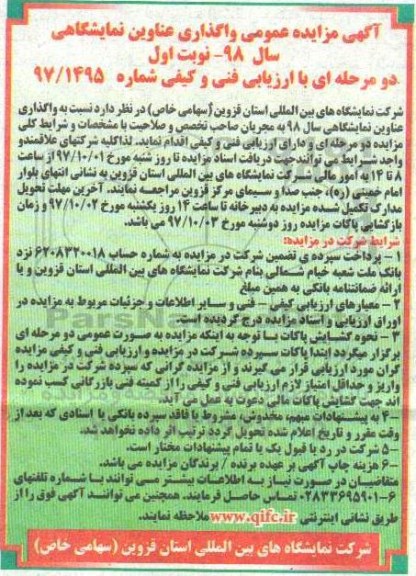 آگهی مزایده عمومی واگذاری عناوین نمایشگاهی
سال ۹۸- نوبت اول
دو مرحله ای با ارزیابی فنی و کیفی شماره ۹۷/۱۴۹۵
شرکت نمایشگاه های بین المللی استان قزوین (سهامی خاص) در نظر دارد نسبت به واگذاری
عناوین نمایشگاهی سال ۹۸ به مجریان صاحب تخصص و صلاحیت با مشخصات و شرایط کلی
مزایده دو مرحله ای و دارای ارزیابی فنی و کیفی اقدام نماید. لذا کلیه شرکتهای علاقمند و
واجد شرایط می توانند جهت دریافت اسناد مزایده تا روز شنبه مورخ ۹۷/۱۰/۰۱ از ساعت
۸ تا ۱۴ به امور مالی شرکت نمایشگاه های بین المللی استان قزوین به نشانی انتهای بلوار
امام خمینی (ره)، جنب صدا و سیمای مرکز قزوین مراجعه نمایند. آخرین مهلت تحویل
مدارک تکمیل شده مزایده به دبیرخانه تا ساعت ۱۴ روز یکشنبه مورخ ۹۷/۱۰/۰۲ و زمان
بازگشایی پاکات مزایده روز دوشنبه مورخ ۹۷/۱۰/۰۳ می باشد.
شرایط شرکت در مزایده:
۱ - پرداخت سپرده ی تضمین شرکت در مزایده به شماره حساب ۶۲۰۸۳۲۰۰۱۸ نزد
بانک ملت شعبه خیام شمالی بنام شرکت نمایشگاه های بین المللی استان قزوین و یا
ارائه ضمانتنامه بانکی به همین مبلغ
۲ - معیارهای ارزیابی کیفی - فنی و سایر اطلاعات و جزئیات مربوط به مزایده در
اوراق ارزیابی و اسناد مزایده درج گردیده است.
۳ - نحوه گشایش پاکات با توجه به اینکه مزایده به صورت عمومی دو مرحله ای
برگزار میگردد ابتدا پاکات سپرده شرکت در مزایده و ارزیابی فنی و کیفی مزایده
گران مورد ارزیابی قرار می گیرند و از مزایده گرانی که سپرده شرکت در مزایده را
واریز و حداقل امتیاز لازم ارزیابی فنی و کیفی را از کمیته فنی بازرگانی کسب نموده
اند جهت گشایش پاکات مالی دعوت به عمل می آید.
۴- به پیشنهادات مبهم، مخدوش، مشروط یا فاقد سپرده بانکی یا اسنادی که بعد از
وقت مقرر و تاریخ اعلام شده تحویل گردد ترتیب اثر داده نخواهد شد.
۵- شرکت در رد یا قبول یک یا تمام پیشنهادات مختار است.
۶- هزینه چاپ آگهی بر عهده برنده / برندگان مزایده می باشد.
متقاضیان در صورت نیاز به اطلاعات بیشتر می توانند با شماره تلفنهای
۶-۰۲۸۳۳۶۹۵۹۰۱ تماس حاصل فرمایند. همچنین می توانند آگهی فوق را از
طریق نشانی اینترنتی www.qifc.ir ملاحظه نمایند.
شرکت نمایشگاه های بین المللی استان قزوین (سهامی خاص)